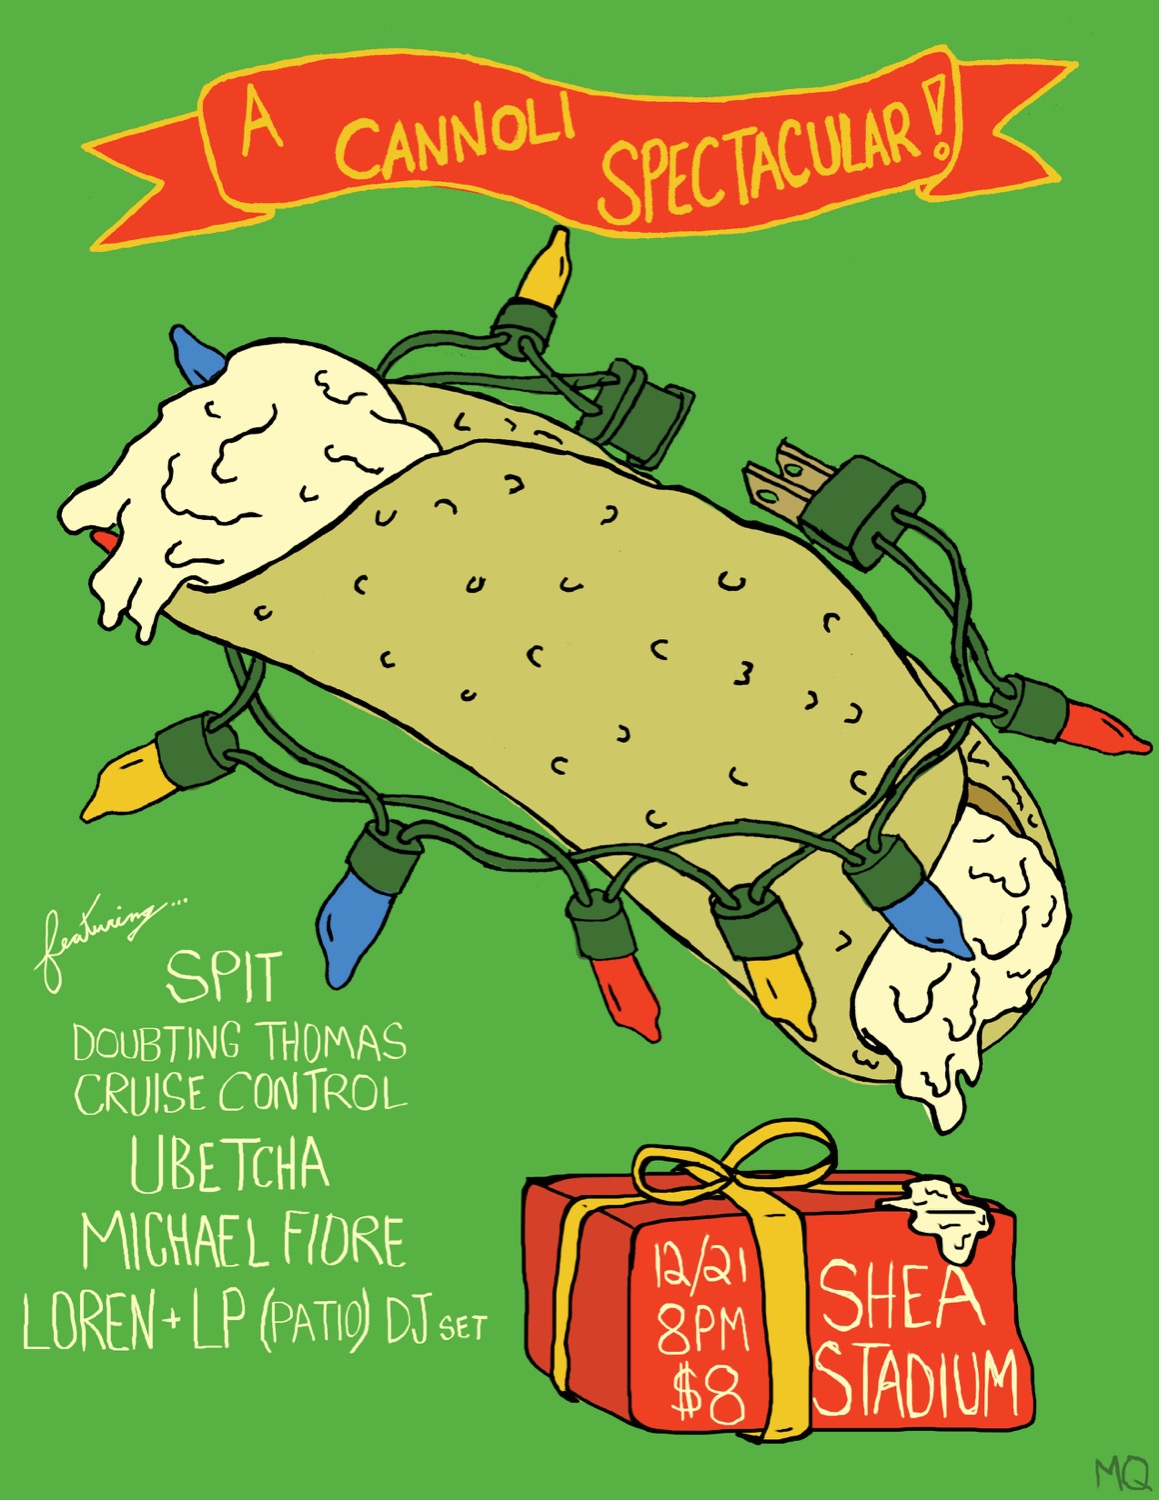 A CANNOLI SPECTACULAR!
featuring...
SPIT
DOUBTING THOMAS
CRUISE CONTROL
UBETCHA
MICHAEL FIORE
LOREN + LP (PATIO) DJ SET
12/21
8PM
$8
SHEA
STADIUM
MQ